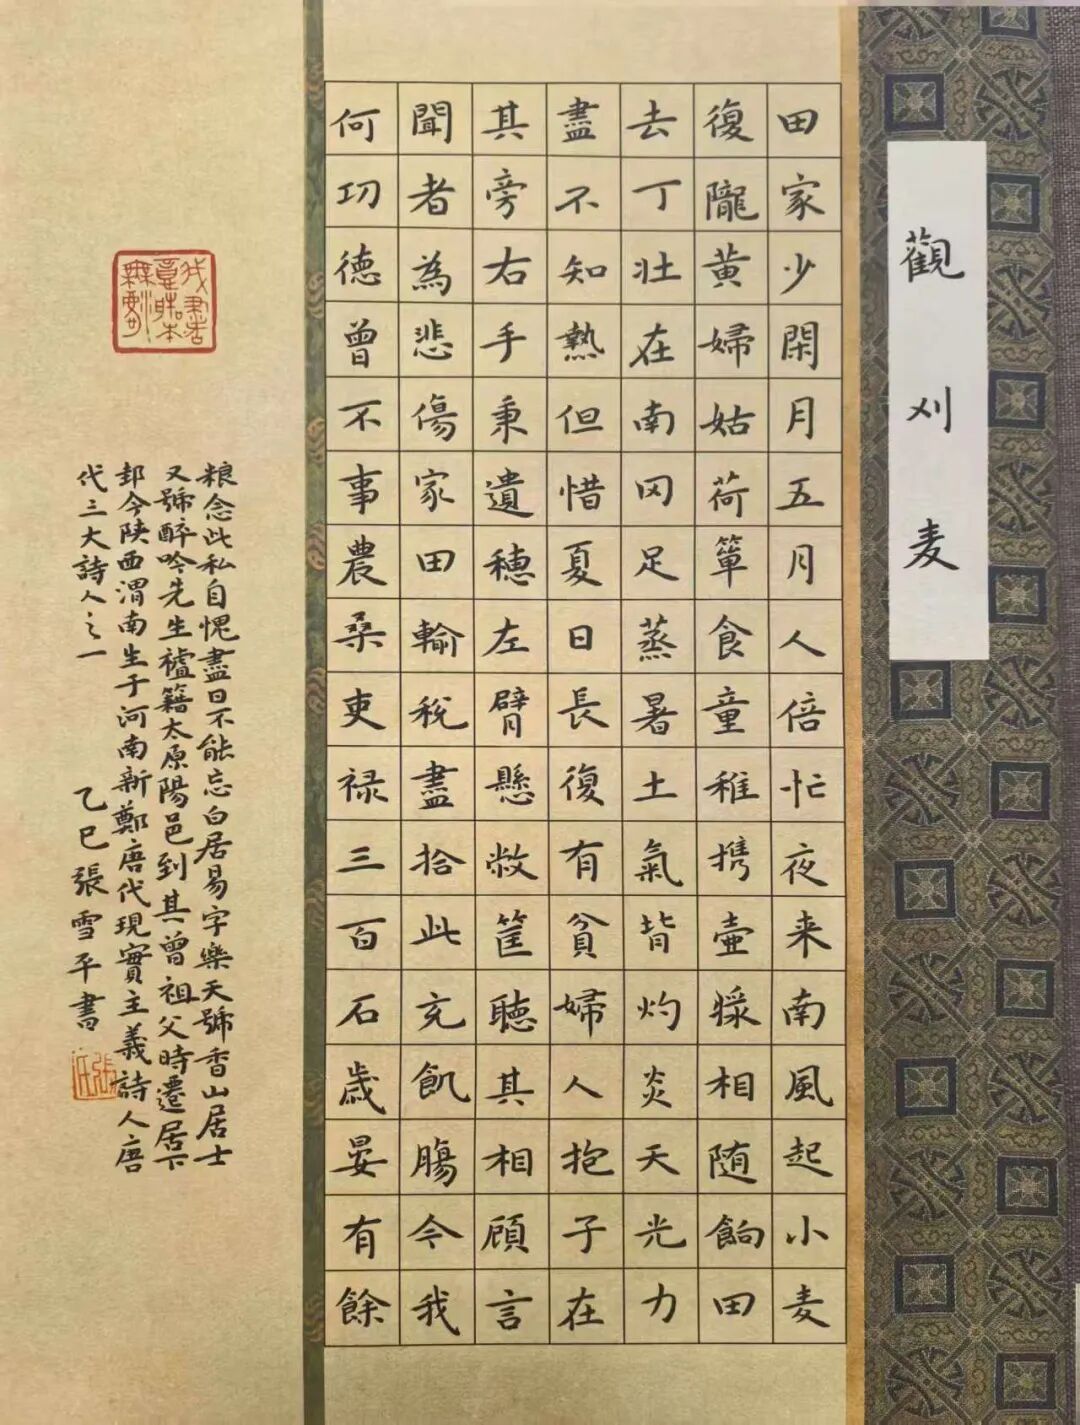 觀刈麦
田家少閑月五月人倍忙夜来南風起小麦
復隴黄婦姑荷箪食童稚携壺漿相随餉田
去丁壮在南冈足蒸暑土氣背灼炎天光力
盡不知熱但惜夏日長復有貧婦人抱子在
其旁右手秉遺穗左臂懸敝筐聽其相顧言
聞者為悲傷家田輸稅盡拾此充飢腸今我
何功德曾不事農桑吏禄三百石歳晏有餘
粮念此私自愧盡日不能忘白居易字樂天號香山居士
又號醉吟先生籍太原陽邑到其曾祖父時遷居下
邽今陕西渭南生于河南新鄭唐代現實主義詩人唐
代三大詩人之一
乙巳張雪平書